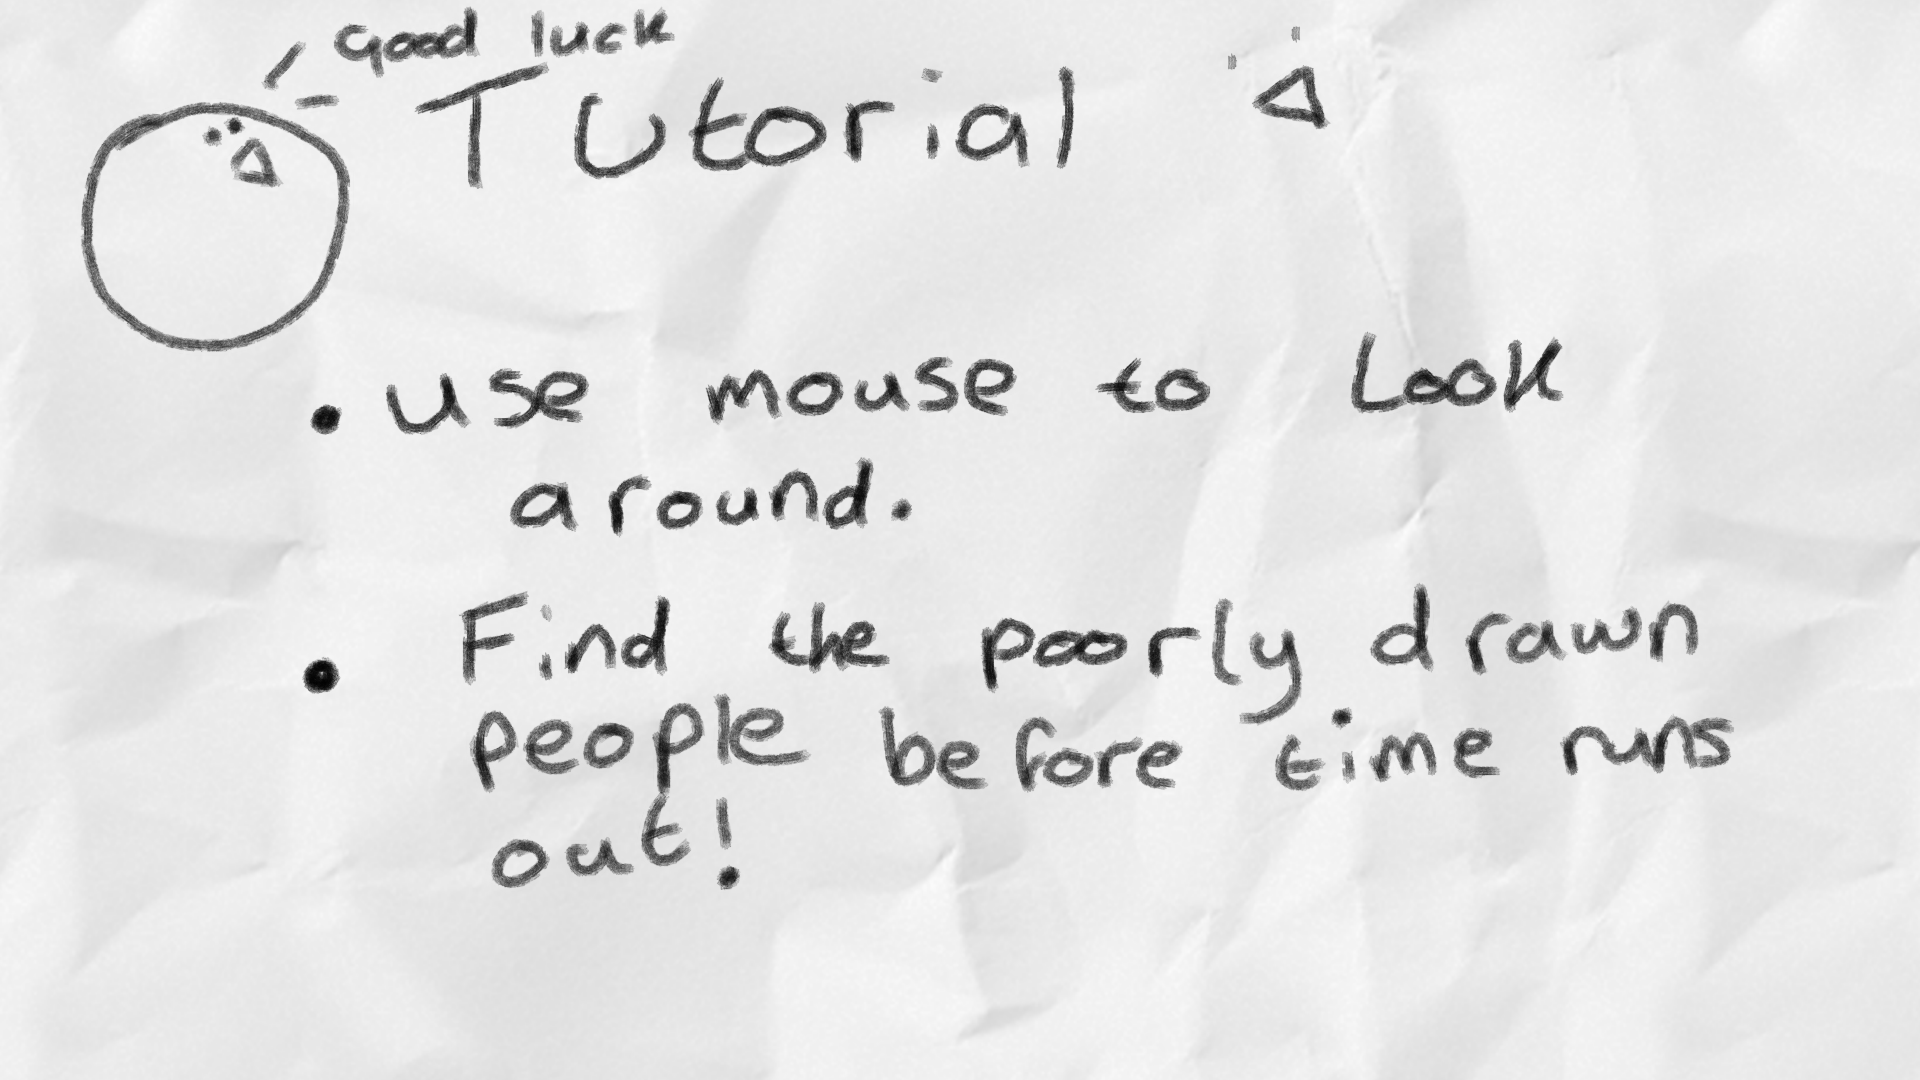 Good luck
Tutorial
• Use mouse to Look
around.
• Find the poorly drawn
people before time runs
out!